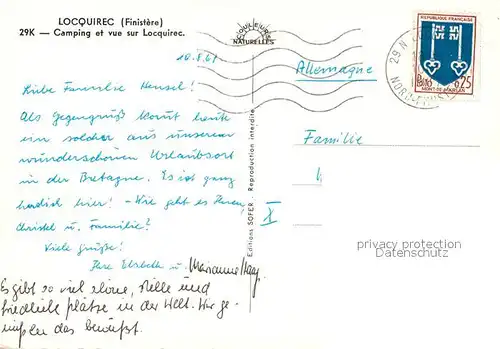 LOCQUIREC (Finistère)
29K — Camping et vue sur Locquirec.
COULEURS
NATURELLES
REPUBLIQUE FRANÇAISE
0,25
MONT-DE-MARSAN
29 N
10.8.67
Allemagne
Liebe Familie Hensel!
Als Gegengruß kommt heute
ein solcher aus unserem
wunderschönen Urlaubsort
in der Bretagne. Es ist ganz
herrlich hier! - Wie geht es Ihnen
Christel u. Familie?
Viele Grüße!
Ihre Lisbeth u. Marianne
Es gibt so viel schöne, stille und
friedliche plätze in der Welt. Wir ge-
nießen das bewußt.
Familie
X
Editions SOFER - Reproduction interdite
privacy protection
Datenschutz